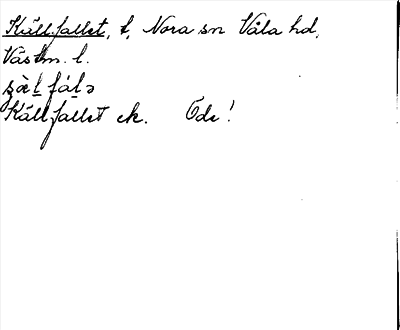 Källfallet, t, Nora sn Våla hd,
Västm. l.
Källfallet ek. Öde!